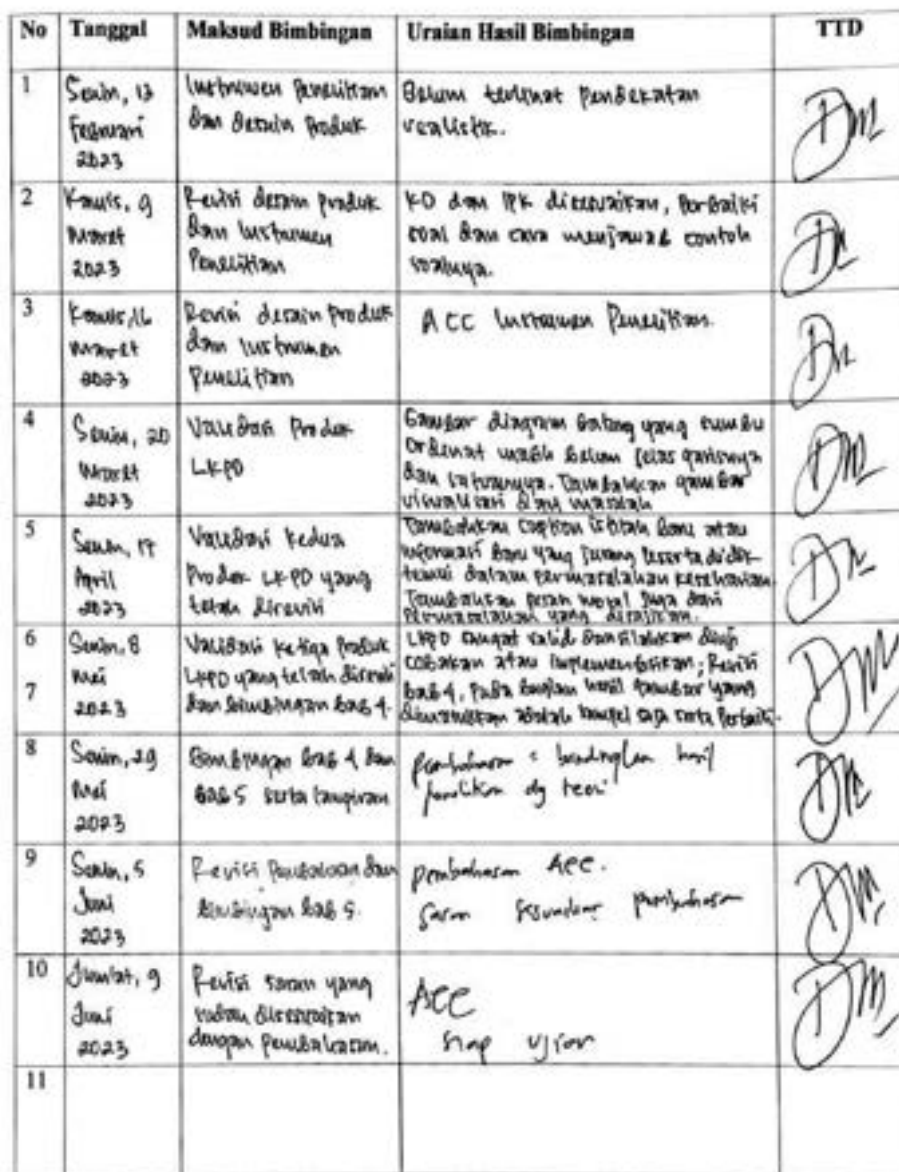 No Tanggal Maksud Bimbingan Uraian Hasil Bimbingan TTD
1
Senin, 13
Februari
2023
Instrumen Penelitian
dan desain Produk
Belum terlihat Pendekatan
realistik.
2
Kamis, 9
Maret
2023
Revisi desain produk
dan Instrumen
Penelitian
KD dan IPK disesuaikan, Perbaiki
soal dan cara menjawab contoh
soalnya.
3
Kamis, 16
Maret
2023
Revisi desain Produk
dan Instrumen
Penelitian
ACC Instrumen Penelitian.
4
Senin, 20
Maret
2023
Validasi Produk
LKPD
Gambar diagram batang yang sumbu
ordinat masih belum jelas garisnya
dan satuannya. Tambahkan gambar
visualisasi masalah
5
Senin, 17
April
2023
Validasi kedua
Produk LKPD yang
telah direvisi
Tambahkan caption istilah baru atau
informasi baru yang jarang peserta didik
temui dalam permasalahan keseharian.
Tambahkan pesan moral juga dari
Permasalahan yang disajikan.
6
7
Senin, 8
Mei
2023
Validasi ketiga Produk
LKPD yang telah direvisi
dan bimbingan bab 4.
LKPD sangat valid dan silahkan diuji
cobakan atau implementasikan; Revisi
bab 4, Pada bagian hasil gambar yang
dimasukkan adalah tampel saja serta Perbaiki.
8
Senin, 29
Mei
2023
Bimbingan bab 4 dan
bab 5 serta lampiran
pembahasan = bandingkan hasil
penelitian dg teori
9
Senin, 5
Juni
2023
Revisi Pembahasan dan
bimbingan bab 5.
pembahasan ACC.
saran sesuaikan pembahasan
10
Jumat, 9
Juni
2023
Revisi saran yang
sudah disesuaikan
dengan pembahasan.
ACC
siap ujian
11